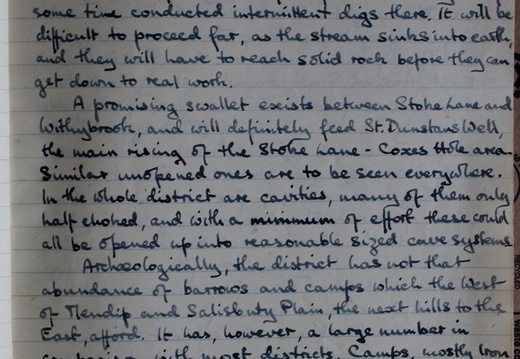 some time conducted intermittent digs there. It will be
difficult to proceed far, as the stream sinks into earth,
and they will have to reach solid rock before they can
get down to real work.
A promising swallet exists between Stoke Lane and
Withybrook, and will definitely feed St. Dunstans Well,
the main rising of the Stoke Lane - Coxes Hole area.
Similar unopened ones are to be seen everywhere.
In the whole district are cavities, many of them only
half choked, and with a minimum of effort these could
all be opened up into reasonable sized cave systems.
Archæologically, the district has not that
abundance of barrows and camps which the West
of Mendip and Salisbury Plain, the next hills to the
East, afford. It has, however, a large number in
comparison with most districts. Camps, mostly Iron